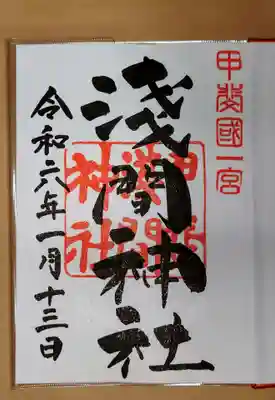 甲斐國一宮
淺間神社
令和六年一月十三日